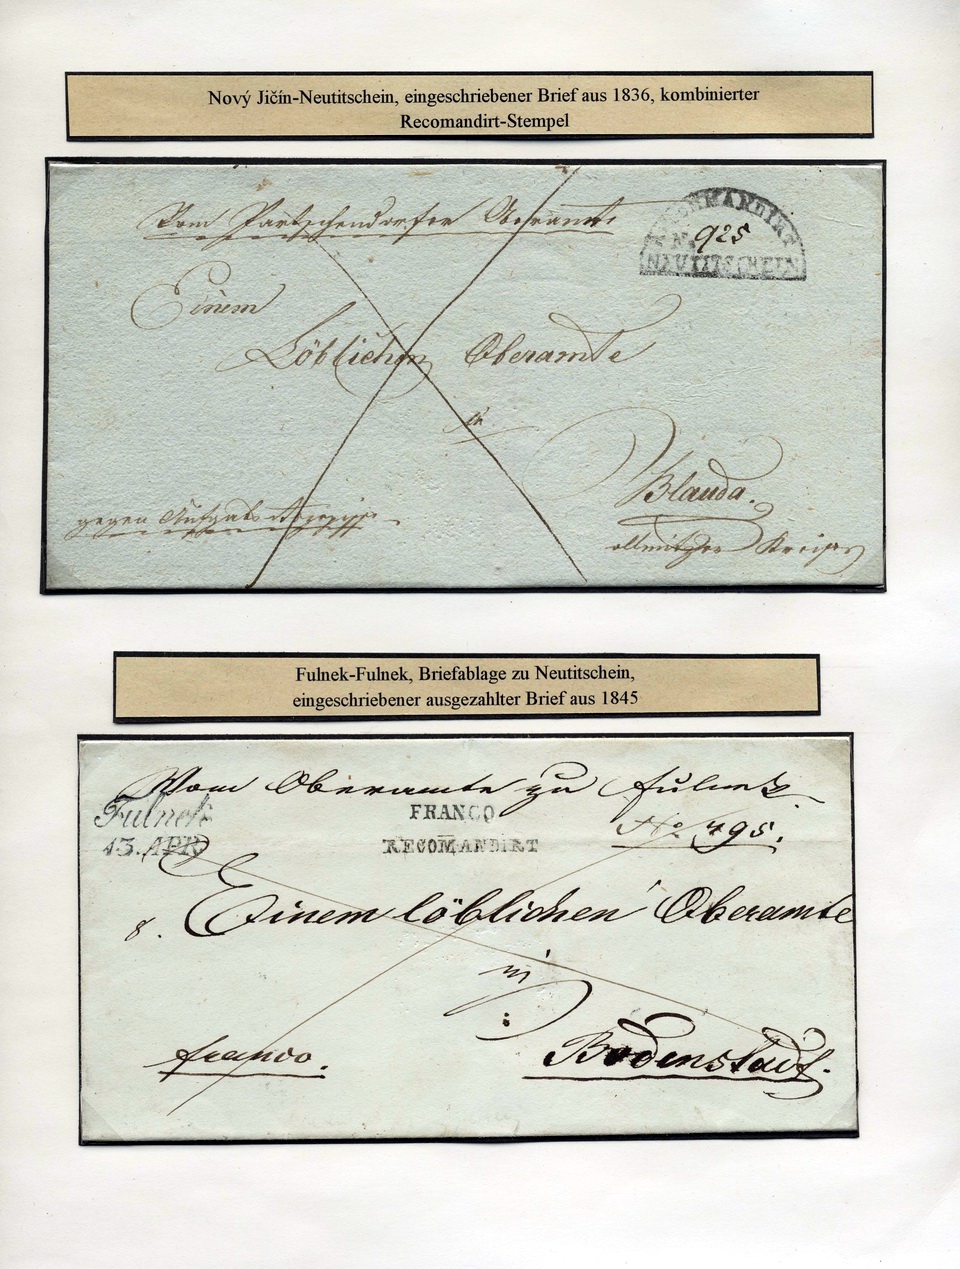 Nový Jičín-Neutitschein, eingeschriebener Brief aus 1836, kombinierter
Recomandirt-Stempel
Vom Partschendorfer Oberamte
RECOMMANDIRT
N. 925
NEUTITSCHEIN
Einem
Löblichen Oberamte
in
Blauda.
gegen Aufgabs Rezepisse
ollmützer Kreises
Fulnek-Fulnek, Briefablage zu Neutitschein,
eingeschriebener ausgezahlter Brief aus 1845
Vom Oberamte zu Fulnek
Fulnek
13. APR
FRANCO
RECOMANDIRT
No. 795.
8.
Einem löblichen Oberamte
in
Bodenstadt.
franco.